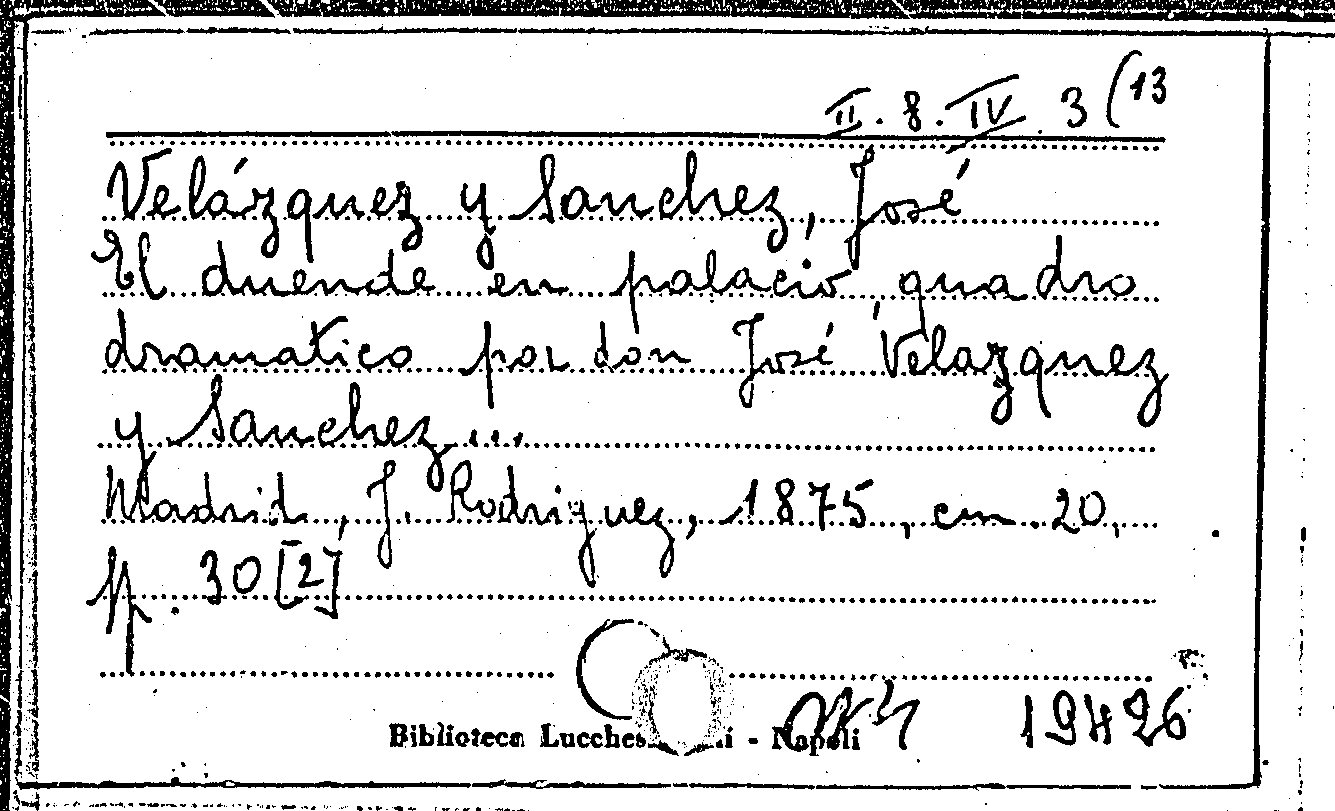 II. 8. IV. 3 (13
Velázquez y Sanchez, José
El duende en palacio, quadro
dramatico por don José Velazquez
y Sanchez...
Madrid, J. Rodriguez, 1875, cm. 20,
p. 30 [2]
Biblioteca - Napoli
19426